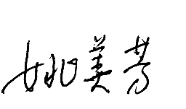 姚美芳